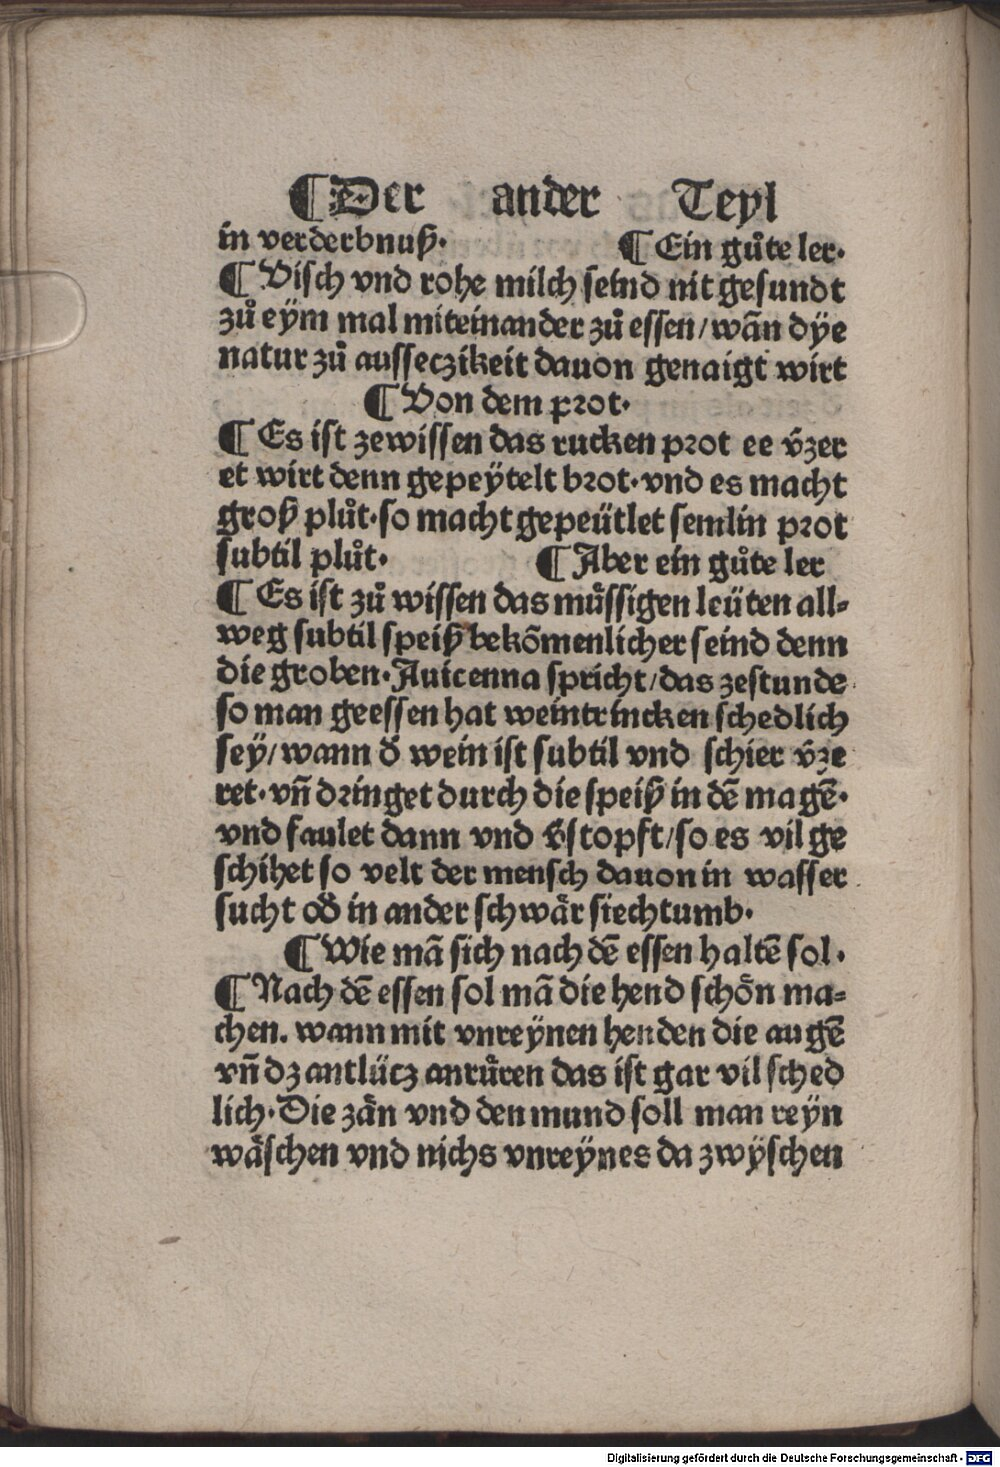 ¶ Der ander Teyl
in verderbnuß. ¶ Ein gůte ler.
¶ Visch vnd rohe milch seind nit gesundt
zů eym mal miteinander zů essen/wañ dÿe
natur zů ausseczikeit dauon genaigt wirt
¶ Von dem prot.
¶ Es ist zewissen das rucken prot ee v̄zer
et wirt denn gepeÿtelt brot.vnd es macht
groß plůt.so macht gepeütlet semlin prot
subtil plůt. ¶ Aber ein gůte ler
¶ Es ist zů wissen das mu̎ssigen leüten all⸗
weg subtil speiß bekõmenlicher seind denn
die groben.Auicenna spricht/das zestunde
so man geessen hat weintrincken schedlich
seÿ/wann d̄ wein ist subtil vnd schier v̄ze
ret.vñ dringet durch die speiß in dē magē.
vnd faulet dann vnd v̄stopft/so es vil ge
schihet so velt der mensch dauon in wasser
sucht od̄ in ander schwår siechtumb.
¶ Wie mā sich nach dē essen haltē sol.
¶ Nach dē essen sol mā die hend schön ma⸗
chen. wann mit vnreÿnen henden die augē
vñ dz antlücz anrüren das ist gar vil sched
lich.Die zän vnd den mund soll man reÿn
wäschen vnd nichs vnreÿnes da zwÿschen
Digitalisierung gefördert durch die Deutsche Forschungsgemeinschaft - DFG